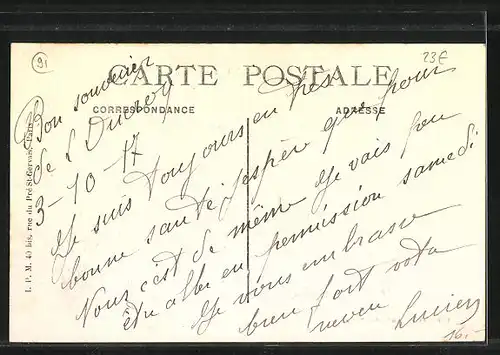 91
23E
CARTE POSTALE
CORRESPONDANCE
ADRESSE
Bon souvenir
de L
3-10-17
Je suis toujours en tres
bonne santé j'espère que pour
Vous c'est de même Je vais peu
être aller en permission samedi
Je vous embrasse
bien fort votre
neveu Lucien
L. P. M. 40 bis, rue du Pré-St-Gervais, Paris
16.-